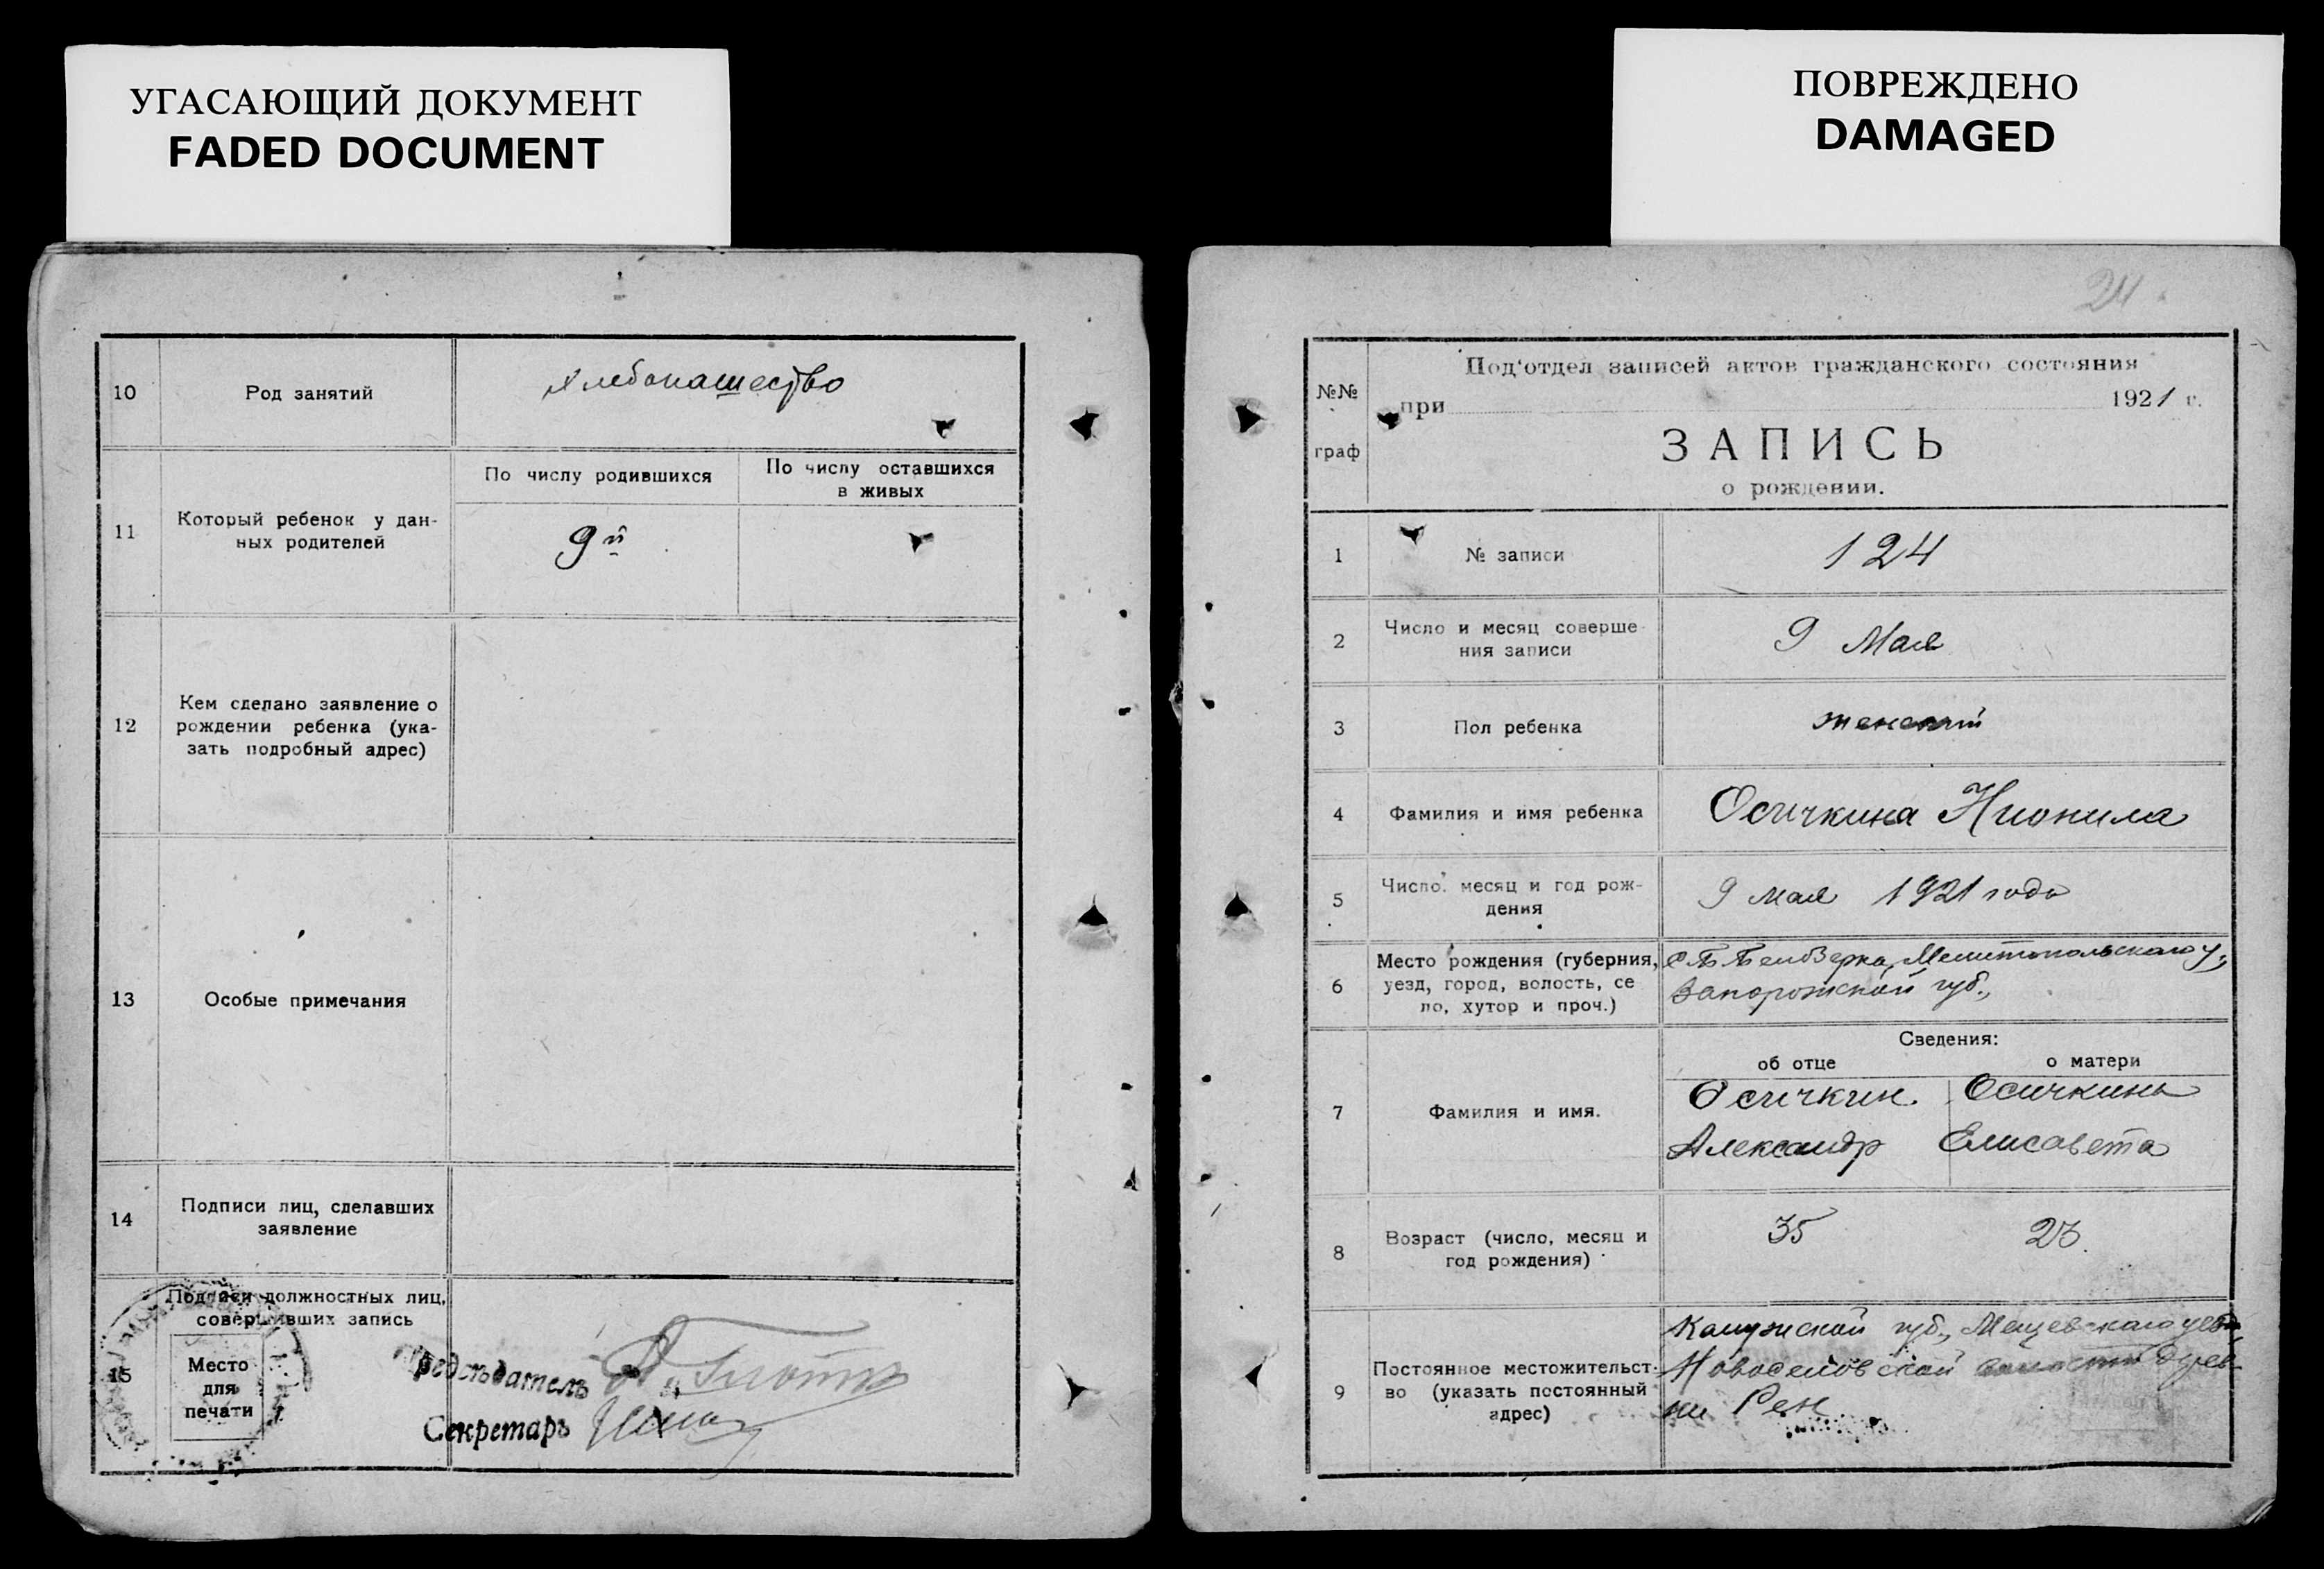 УГАСАЮЩИЙ ДОКУМЕНТ
FADED DOCUMENT
ПОВРЕЖДЕНО
DAMAGED
10
Род занятий
хлебопашество
11
Который ребенок у дан-
ных родителей
По числу родившихся
9й
По числу оставшихся
в живых
12
Кем сделано заявление о
рождении ребенка (ука-
зать подробный адрес)
13
Особые примечания
14
Подписи лиц, сделавших
заявление
15
Подписи должностных лиц,
совершивших запись
Место
для
печати
Председатель
Секретарь
24
№№
граф
Под'отдел записей актов гражданского состояния
при 1921 г.
ЗАПИСЬ
о рождении.
1
№ записи
124
2
Число и месяц соверше-
ния записи
9 Мая
3
Пол ребенка
женский
4
Фамилия и имя ребенка
Осичкина Нионила
5
Число, месяц и год рож-
дения
9 мая 1921 года
6
Место рождения (губерния,
уезд, город, волость, се
ло, хутор и проч.)
Мелитопольского у.,
Запорожской губ.,
Сведения:
об отце
о матери
7
Фамилия и имя.
Осичкин
Александр
Осичкина
Елисавета
8
Возраст (число, месяц и
год рождения)
35
23
9
Постоянное местожительст-
во (указать постоянный
адрес)
Калужской губ.,
Новоселовской волости дерев-
ни